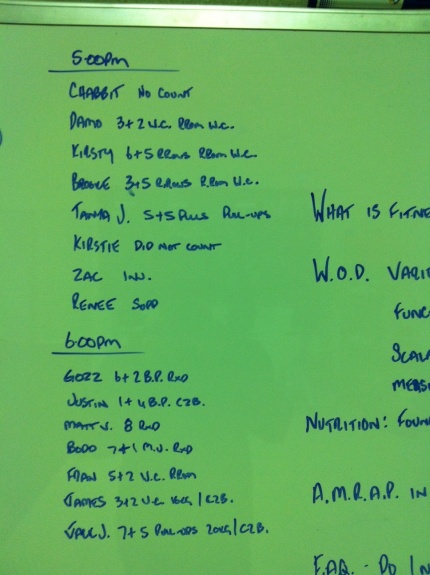 5:00pm
CHABBIT NO COUNT
DAMO 3+2 V.C. RROM V.C.
KIRSTY 6+5 RROWS RROM V.C.
BROOKE 3+5 R.ROWS R.ROM V.C.
TANYA J. 5+5 PULL-UPS
KIRSTIE DID NOT COUNT
ZAC INJ.
RENEE
6:00pm
GOZZ 6+2 B.P. RXD
JUSTIN 1+4 B.P. C2B.
MATT J. 8 RXD
BODO 7+1 M.U. RXD
FRAN 5+2 V.C. RROM
JAMES 3+2 V.C. 16KG/C2B.
JACK J. 7+5 PULL-UPS 20KG/C2B.
WHAT IS FITNE
W.O.D. VARI
FUNC
SCAL
MEAS
NUTRITION: FOUN
A.M.R.A.P. IN
F.A.Q. - DO IN